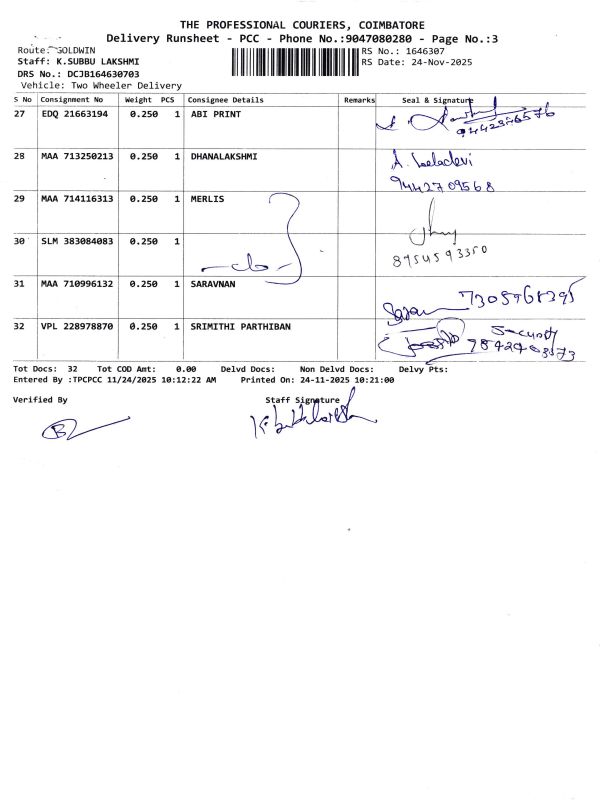 THE PROFESSIONAL COURIERS, COIMBATORE
Delivery Runsheet - PCC - Phone No.:9047080280 - Page No.:3
Route: GOLDWIN RS No.: 1646307
Staff: K.SUBBU LAKSHMI RS Date: 24-Nov-2025
DRS No.: DCJB164630703
Vehicle: Two Wheeler Delivery
S No Consignment No Weight PCS Consignee Details Remarks Seal & Signature
27 EDQ 21663194 0.250 1 ABI PRINT
28 MAA 713250213 0.250 1 DHANALAKSHMI
9442709568
29 MAA 714116313 0.250 1 MERLIS
30 SLM 383084083 0.250 1
8754593350
31 MAA 710996132 0.250 1 SARAVNAN
32 VPL 228978870 0.250 1 SRIMITHI PARTHIBAN
Security
Tot Docs: 32 Tot COD Amt: 0.00 Delvd Docs: Non Delvd Docs: Delvy Pts:
Entered By :TPCPCC 11/24/2025 10:12:22 AM Printed On: 24-11-2025 10:21:00
Verified By Staff Signature